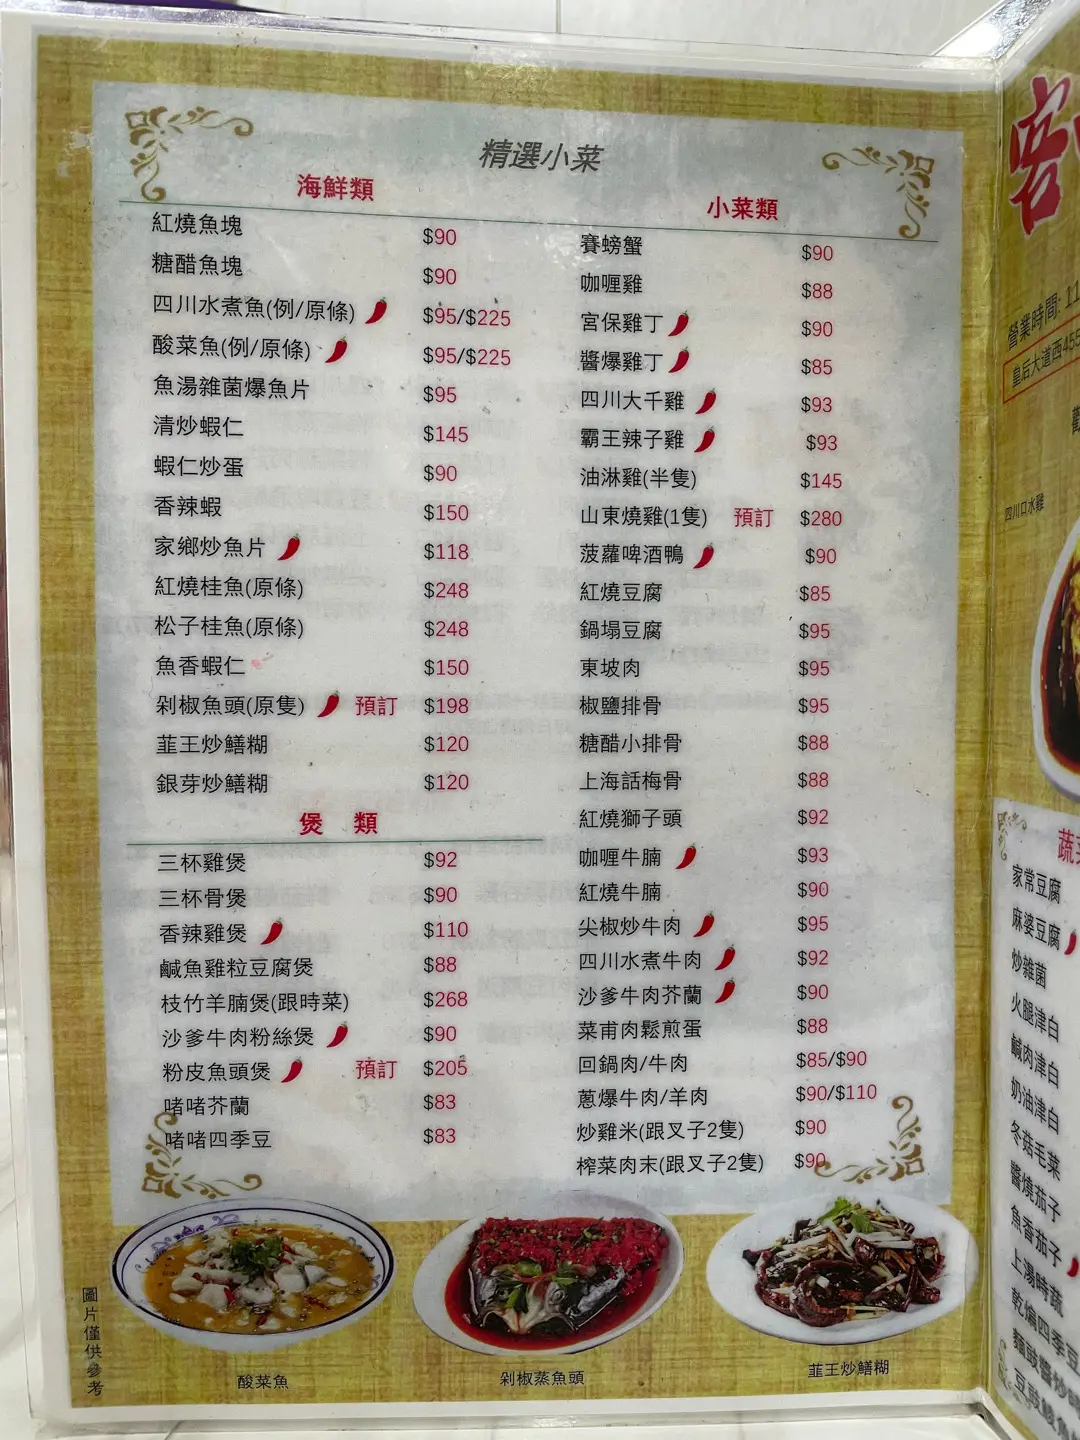 精選小菜
海鮮類
紅燒魚塊 $90
糖醋魚塊 $90
四川水煮魚(例/原條) $95/$225
酸菜魚(例/原條) $95/$225
魚湯雜菌爆魚片 $95
清炒蝦仁 $145
蝦仁炒蛋 $90
香辣蝦 $150
家鄉炒魚片 $118
紅燒桂魚(原條) $248
松子桂魚(原條) $248
魚香蝦仁 $150
剁椒魚頭(原隻) 預訂 $198
韮王炒鱔糊 $120
銀芽炒鱔糊 $120
煲 類
三杯雞煲 $92
三杯骨煲 $90
香辣雞煲 $110
鹹魚雞粒豆腐煲 $88
枝竹羊腩煲(跟時菜) $268
沙爹牛肉粉絲煲 $90
粉皮魚頭煲 預訂 $205
啫啫芥蘭 $83
啫啫四季豆 $83
小菜類
賽螃蟹 $90
咖喱雞 $88
宮保雞丁 $90
醬爆雞丁 $85
四川大千雞 $93
霸王辣子雞 $93
油淋雞(半隻) $145
山東燒雞(1隻) 預訂 $280
菠蘿啤酒鴨 $90
紅燒豆腐 $85
鍋塌豆腐 $95
東坡肉 $95
椒鹽排骨 $95
糖醋小排骨 $88
上海話梅骨 $88
紅燒獅子頭 $92
咖喱牛腩 $93
紅燒牛腩 $90
尖椒炒牛肉 $95
四川水煮牛肉 $92
沙爹牛肉芥蘭 $90
菜甫肉鬆煎蛋 $88
回鍋肉/牛肉 $85/$90
蔥爆牛肉/羊肉 $90/$110
炒雞米(跟叉子2隻) $90
榨菜肉末(跟叉子2隻) $90
圖片僅供參考
酸菜魚
剁椒蒸魚頭
韮王炒鱔糊
客
營業時間: 11
皇后大道西455
四川口水雞
蔬
家常豆腐
麻婆豆腐
炒雜菌
火腿津白
鹹肉津白
奶油津白
冬菇毛菜
醬燒茄子
魚香茄子
上湯時蔬
乾煸四季豆
麵豉醬炒
豆豉鯪魚